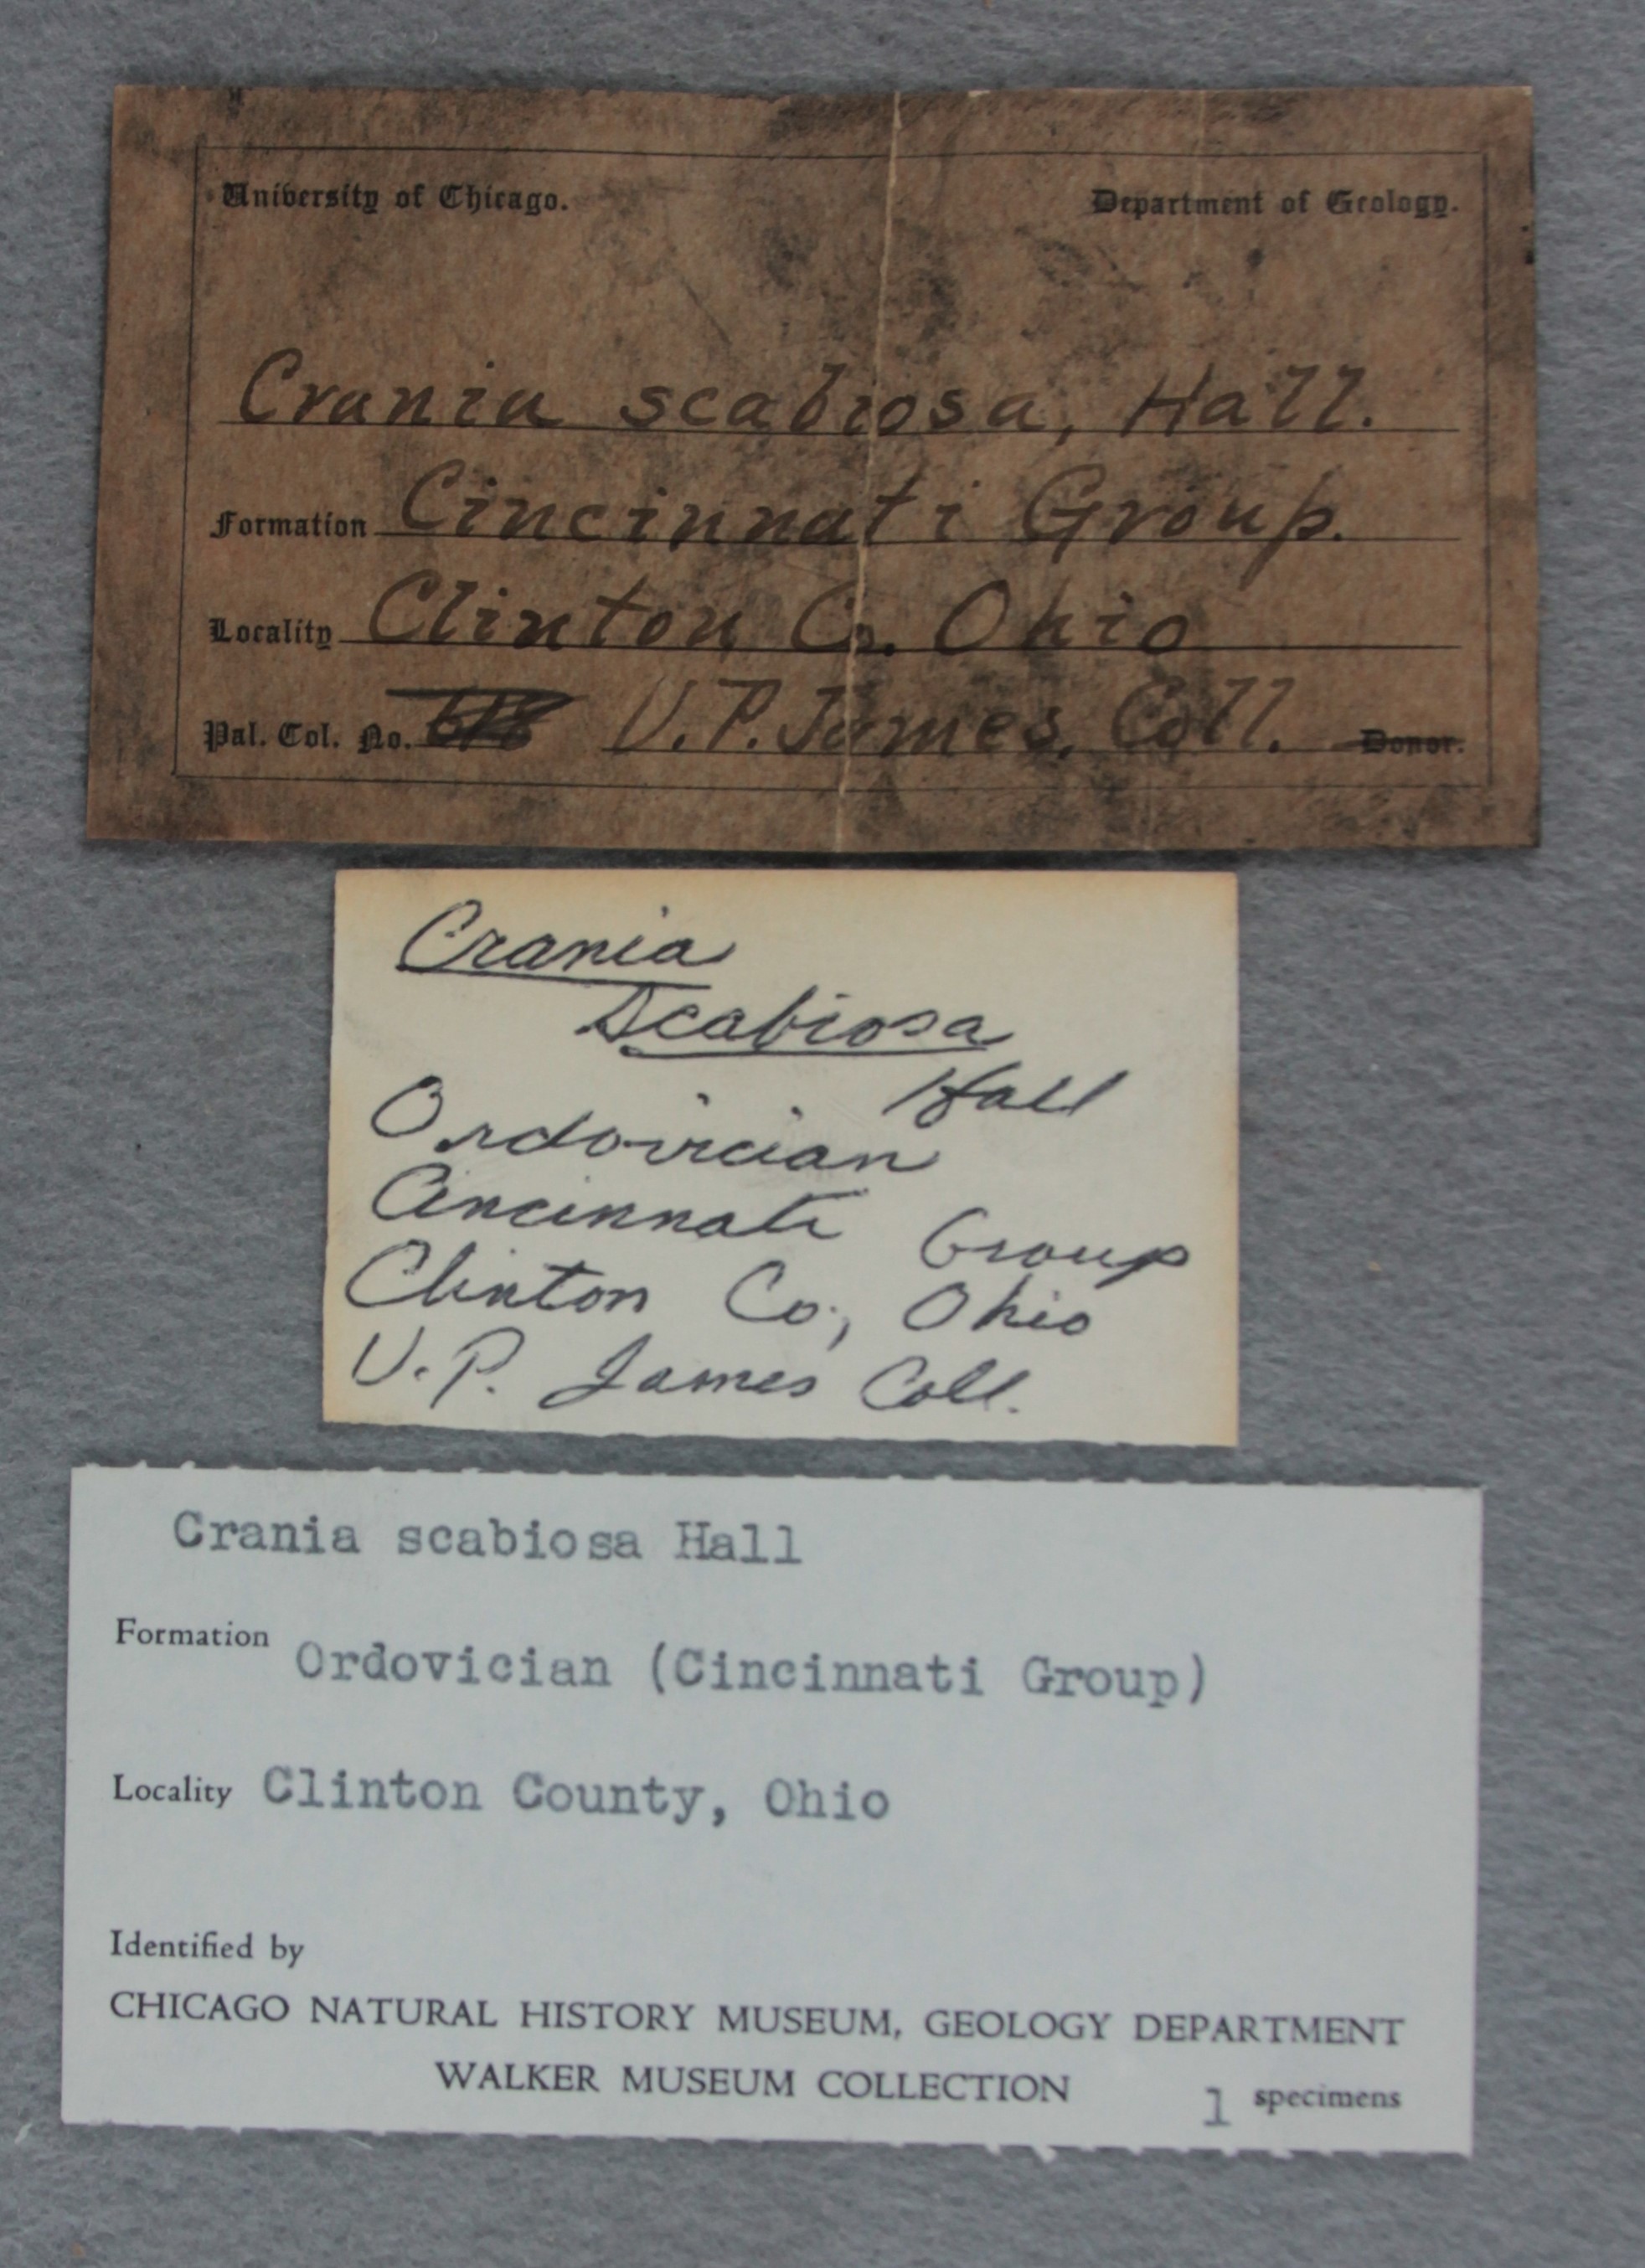 University of Chicago. Department of Geology.
Crania scabiosa, Hall.
Formation Cincinnati Group.
Locality Clinton Co. Ohio
Pal. Col. No. U.P. James. Coll. Donor.
Crania
Scabiosa
Hall
Ordovician
Cincinnati Group
Clinton Co., Ohio
U.P. James Coll.
Crania scabiosa Hall
Formation Ordovician (Cincinnati Group)
Locality Clinton County, Ohio
Identified by
CHICAGO NATURAL HISTORY MUSEUM, GEOLOGY DEPARTMENT
WALKER MUSEUM COLLECTION 1 specimens